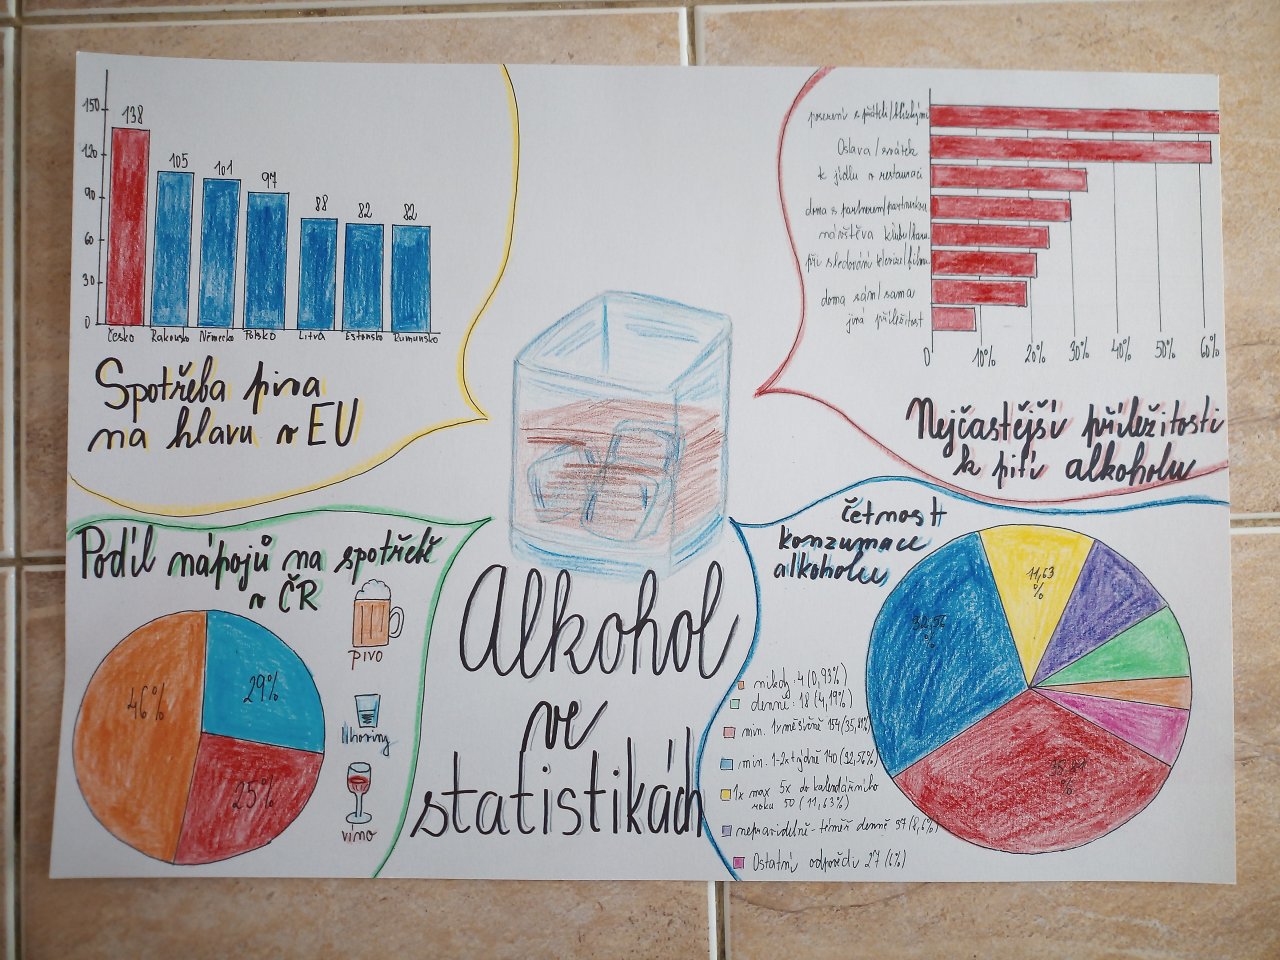 150
120
90
60
30
0
138
105
101
97
88
82
82
Česko
Rakousko
Německo
Polsko
Litva
Estonsko
Rumunsko
Spotřeba piva
na hlavu v EU
posezení s přáteli/blízkými
Oslava/svátek
k jídlu v restauraci
doma s partnerem/partnerkou
návštěva klubu/baru
při sledování televize/filmu
doma sám/sama
jiná příležitost
0
10%
20%
30%
40%
50%
60%
Nejčastější příležitosti
k pití alkoholu
Podíl nápojů na spotřebě
v ČR
46%
29%
25%
pivo
lihoviny
víno
Alkohol
ve
statistikách
četnost
konzumace
alkoholu
32,56
%
11,63
%
35,81
%
nikdy: 4 (0,93%)
denně: 18 (4,19%)
min. 1x měsíčně 154 (35,81%)
min. 1-2x týdně 140 (32,56%)
1x max 5x do kalendářního
roku 50 (11,63%)
nepravidelně - téměř denně 37 (8,6%)
Ostatní odpovědi 27 (6%)